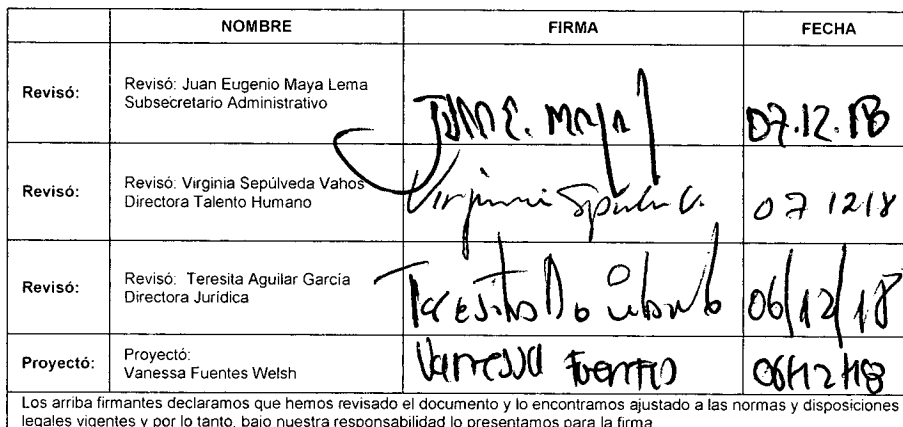 NOMBRE FIRMA FECHA
Revisó: Revisó: Juan Eugenio Maya Lema
Subsecretario Administrativo
Juan E. Maya 07.12.18
Revisó: Revisó: Virginia Sepúlveda Vahos
Directora Talento Humano
Virginia 07 12 18
Revisó: Revisó: Teresita Aguilar García
Directora Jurídica
Teresita 06/12/18
Proyectó: Proyectó:
Vanessa Fuentes Welsh
Vanessa Fuentes 06/12/18
Los arriba firmantes declaramos que hemos revisado el documento y lo encontramos ajustado a las normas y disposiciones
legales vigentes y por lo tanto, bajo nuestra responsabilidad lo presentamos para la firma